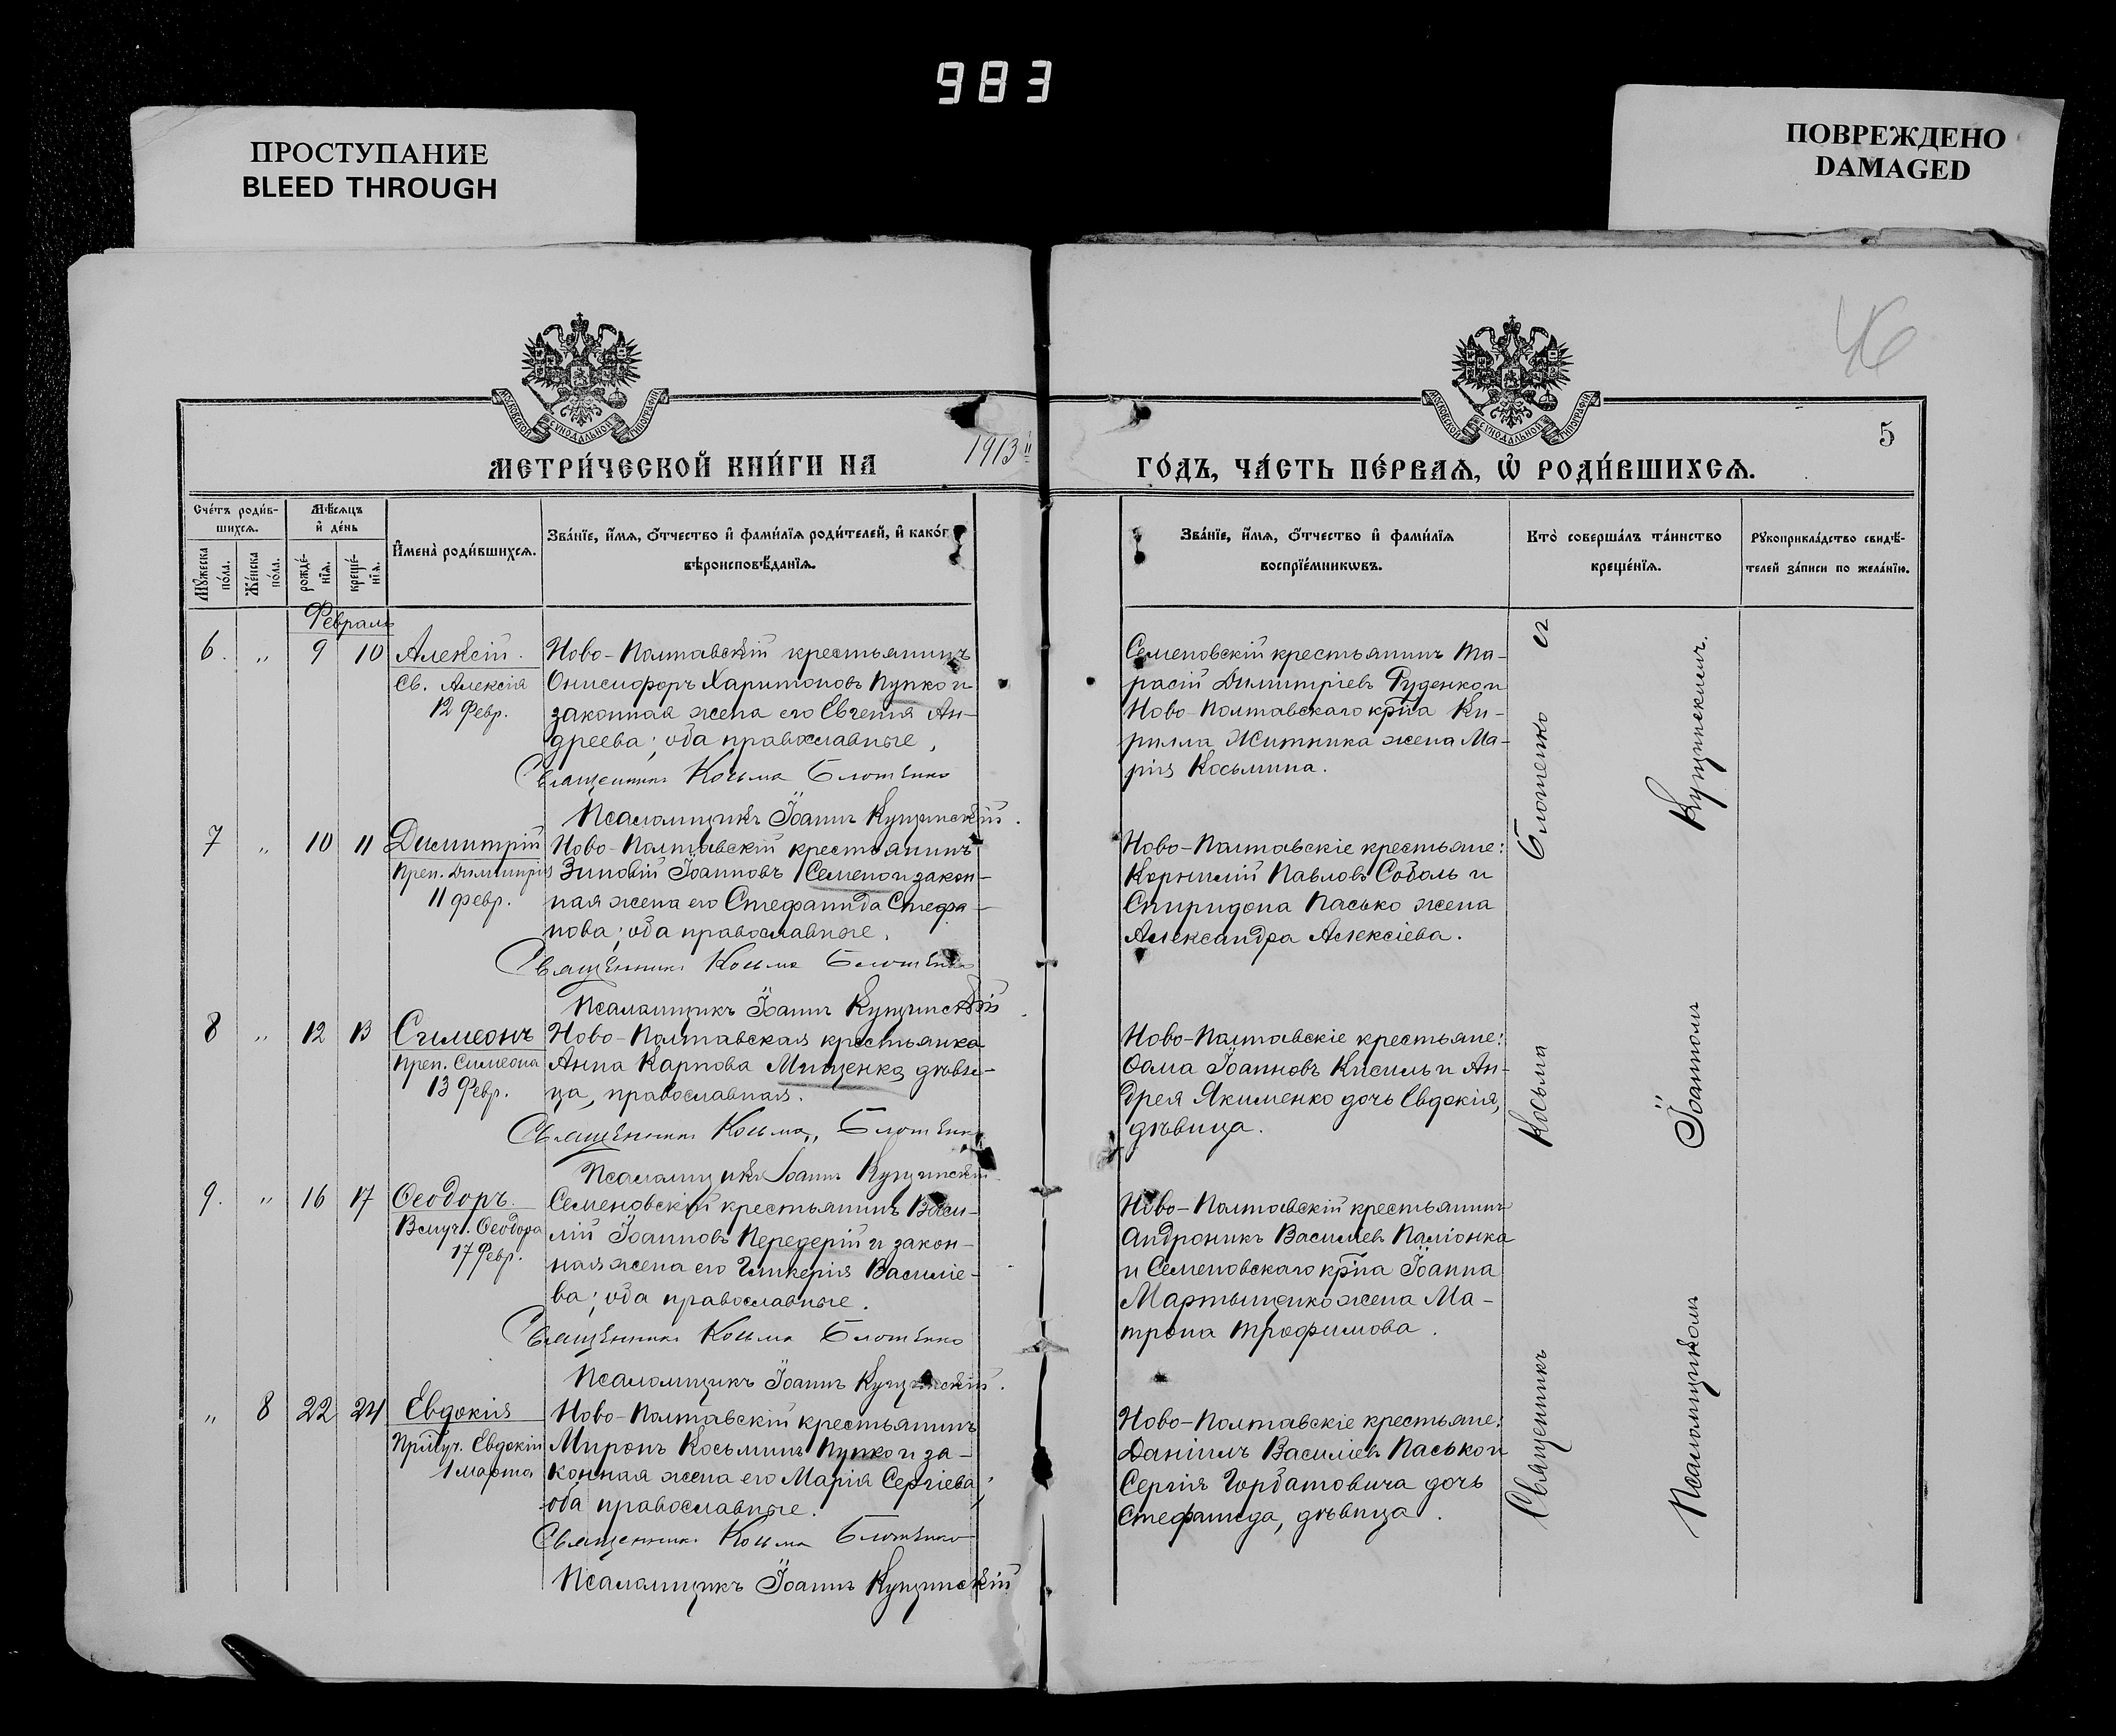 983
ПРОСТУПАНИЕ
BLEED THROUGH
ПОВРЕЖДЕНО
DAMAGED
46
МОСКОВСКОЙ СѴНОДАЛЬНОЙ ТИПОГРАФІИ
МОСКОВСКОЙ СѴНОДАЛЬНОЙ ТИПОГРАФІИ
5
МЕТРИ́ЧЕСКОЙ КНИ́ГИ НА 1913й ГО́ДЪ, ЧА́СТЬ ПЕ́РВАѦ, Ѡ҆ РОДИ́ВШИХСѦ.
Сче́тъ роди́в-
шихсѧ.
Мꙋжеска по́ла.
Же́нска по́ла.
Мѣ́сѧцъ
и҆ де́нь
рожде́-
нїѧ.
креще́-
нїѧ.
И҆мена̀ роди́вшихсѧ.
Зва́нїе, и҆́мѧ, ѻ҆́тчество и҆ фами́лїѧ роди́телей, и҆ како́г
вѣроисповѣ́данїѧ.
Зва́нїе, и҆́мѧ, ѻ҆́тчество и҆ фами́лїѧ
воспрїе́мникѡвъ.
Кто̀ соверша́лъ та́инство
креще́нїѧ.
Рꙋкоприкла́дство свидѣ́-
телей за́писи по жела́нїю.
Февраль
6. „ 9 10 Алексій.
Св. Алексія
12 Февр.
Ново-Полтавскій крестьянинъ
Онисифоръ Харитоновъ Пупко и
законная жена его Евгенія Ан-
дреева; оба православные.
Священникъ Косьма Блошенко
Псаломщикъ Іоаннъ Купчинскій.
Семеновскій крестьянинъ Та-
расій Димитріевъ Руденко и
Ново-Полтавскаго кр̃на Ки-
рилла Житника жена Ма-
рія Косьмина.
7 „ 10 11 Димитрій
Преп. Димитрія
11 февр.
Ново-Полтавскій крестьянинъ
Зиновій Іоанновъ Семено и закон-
ная жена его Стефанида Стефа-
нова; оба православные.
Священникъ Косьма Блошенко
Псаломщикъ Іоаннъ Купчинскій
Ново-Полтавскіе крестьяне:
Корнилій Павловъ Соболь и
Спиридона Пасько жена
Александра Алексіева.
8 „ 12 13 Сѵмеонъ
Преп. Симеона
13 Февр.
Ново-Полтавская крестьянка
Анна Карпова Мищенко, дѣви-
ца, православная.
Священникъ Косьма Блошенко
Псаломщикъ Іоаннъ Купчинскій
Ново-Полтавскіе крестьяне:
Ѳома Іоанновъ Кисиль и Ан-
дрея Якименко дочь Евдокія,
дѣвица.
9. „ 16 17 Ѳеодоръ.
Вмуч. Ѳеодора
17 Февр.
Семеновскій крестьянинъ Васи-
лій Іоанновъ Передерій и закон-
ная жена его Гликерія Василіе-
ва; оба православные.
Священникъ Косьма Блошенко
Псаломщикъ Іоаннъ Купчинскій.
Ново-Полтавскій крестьянинъ
Андроникъ Василіевъ Паліонка
и Семеновскаго кр̃на Іоанна
Мартыщенко жена Ма-
трона Трофимова.
„ 8 22 24 Евдокія
Пр̃муч. Евдокіи
1 марта
Ново-Полтавскій крестьянинъ
Миронъ Косьминъ Пупко и за-
конная жена его Марія Сергіева;
оба православные.
Священникъ Косьма Блошенко
Псаломщикъ Іоаннъ Купчинскій
Ново-Полтавскіе крестьяне:
Даніилъ Василіевъ Пасько и
Сергія Горбатовича дочь
Стефанида, дѣвица.
Священникъ Косьма Блошенко съ
Псаломщикомъ Іоанномъ Купчинскимъ.